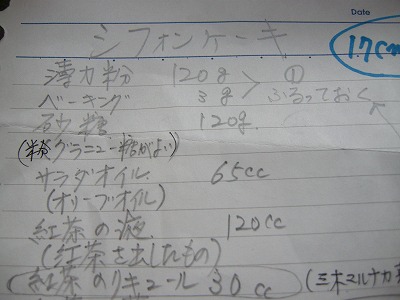 Date
シフォンケーキ
17cm
薄力粉 120g > ①
ベーキング 3g ふるっておく
砂糖 120g.
(粉糖グラニュー糖がよい)
サラダオイル 65cc
(オリーブオイル)
紅茶の液 120cc
(紅茶を出したもの)
(紅茶のリキュール 30cc
(三木マルナカ